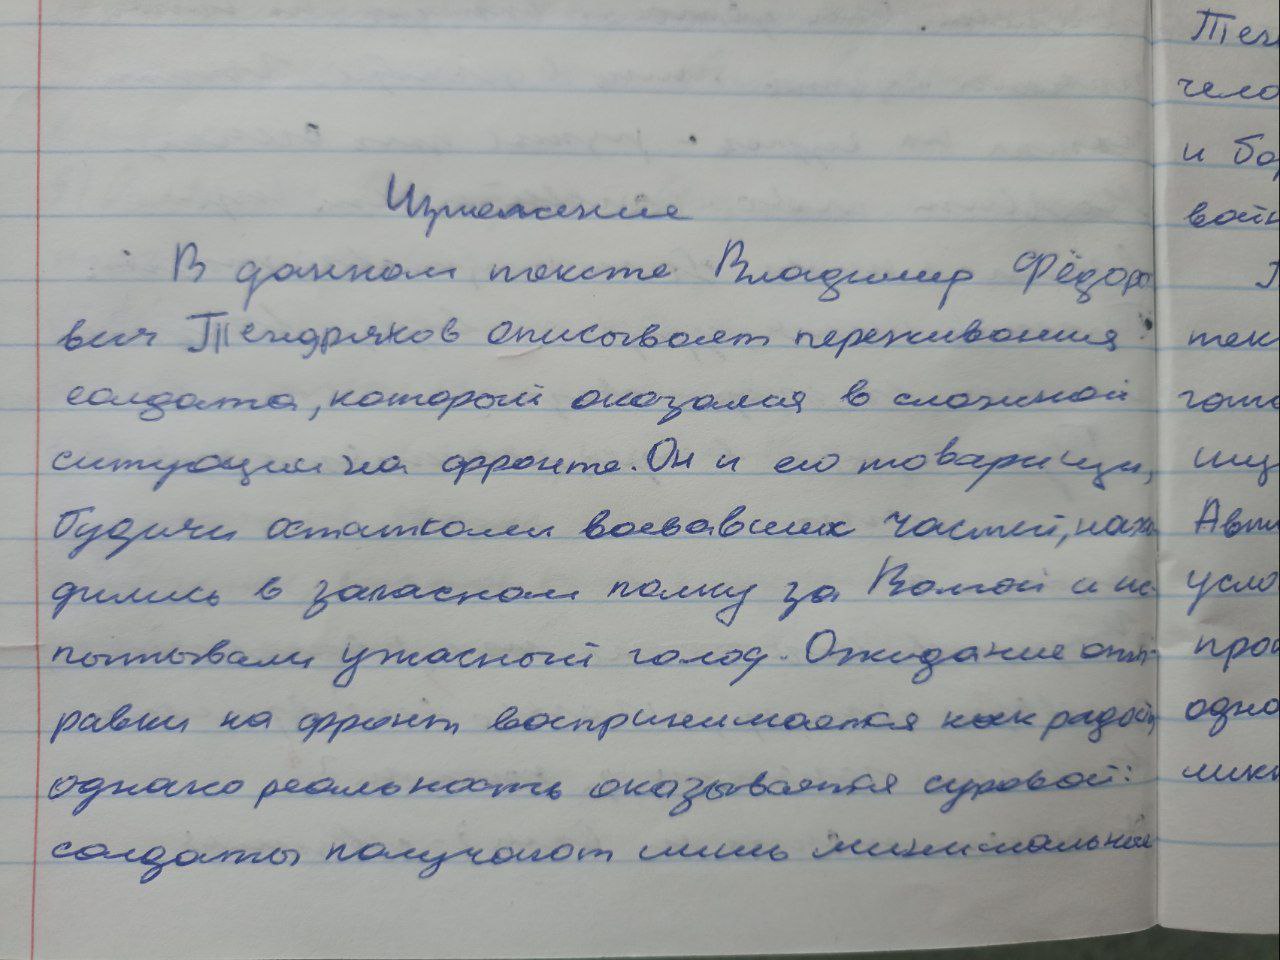 Изложение
В данном тексте Владимир Фёдоро
вич Тендряков описывает переживания
солдата, который оказался в сложной
ситуации на фронте. Он и его товарищи,
будучи остатками воевавших частей, нахо
дились в запасном полку за Волгой и ис-
пытывали ужасный голод. Ожидание отп-
равки на фронт воспринимается как радость,
однако реальность оказывается суровой:
солдаты получают лишь минимальное
Тен
чело
и бо
войн
тек
гото
Авт
усло
про
одно